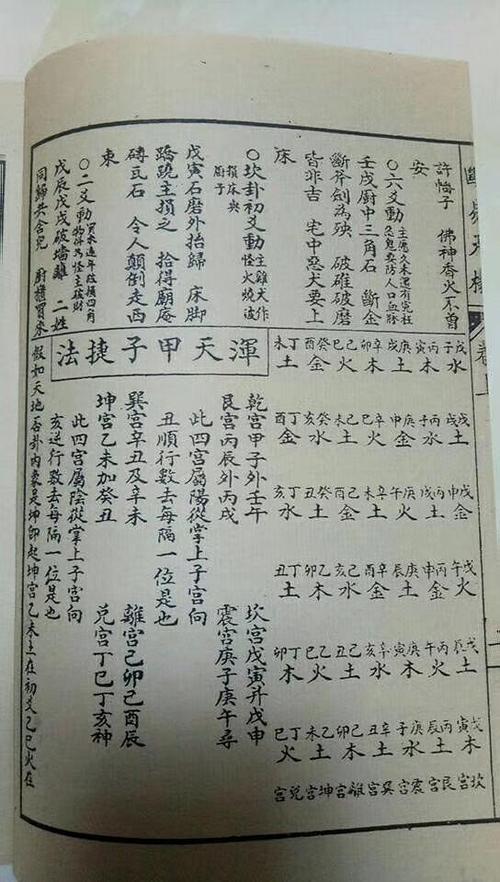 許幡子 佛神香火不曾
安
○六爻動 主愿久未還有冤枉
鬼要防人口血脉
壬戌厨中三角石 斷金
斷斧劍為殃 破碓破磨
皆非吉 宅中惡犬要上
床
○坎卦初爻動 主雞犬作
怪火燒
損床與
厨子
戊寅石磨外抬歸 床脚
蹺蹊主損之 拾得廟庵
磚瓦石 令人顛倒走西
東
○二爻動 買来連年改損四角
物件為怪主破財
戊辰戊戌破墻離 二姓
同歸共合宅 厨櫃買來
戊子水 戊戌土 戊申金 戊午火 戊辰土 戊寅木 坎宫
丙寅木 丙子水 丙戌土 丙申金 丙午火 丙辰土 艮宫
庚戌土 庚申金 庚午火 庚辰土 庚寅木 庚子水 震宫
辛卯木 辛巳火 辛未土 辛酉金 辛亥水 辛丑土 巽宫
己巳火 己未土 己酉金 己亥水 己丑土 己卯木 離宫
癸酉金 癸亥水 癸丑土 乙卯木 乙巳火 乙未土 坤宫
丁未土 丁酉金 丁亥水 丁丑土 丁卯木 丁巳火 兑宫
渾天甲子捷法
乾宫甲子外壬午 坎宫戊寅升戊申
艮宫丙辰外丙戌 震宫庚子庚午尋
此四宫屬陽從掌上子宫向
丑順行數去每隔一位是也
巽宫辛丑及辛未 離宫己卯己酉辰
坤宫乙未加癸丑 兑宫丁巳丁亥神
此四宫屬陰從掌上子宫向
亥逆行數去每隔一位是也
假如天地否卦内象是坤卽起坤宫乙未土在初爻乙巳火在